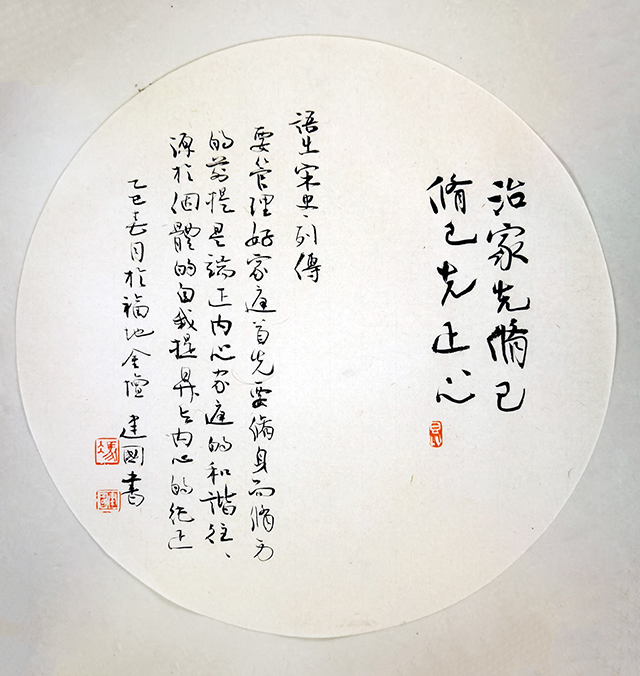 治家先脩己
脩己先正心
語出宋史·列傳
要管理好家庭首先要脩身而脩身
的前提是端正内心家庭的和諧往、
源於個體的自我提昇与内心的純正
乙巳春月於福地金壇 建國書